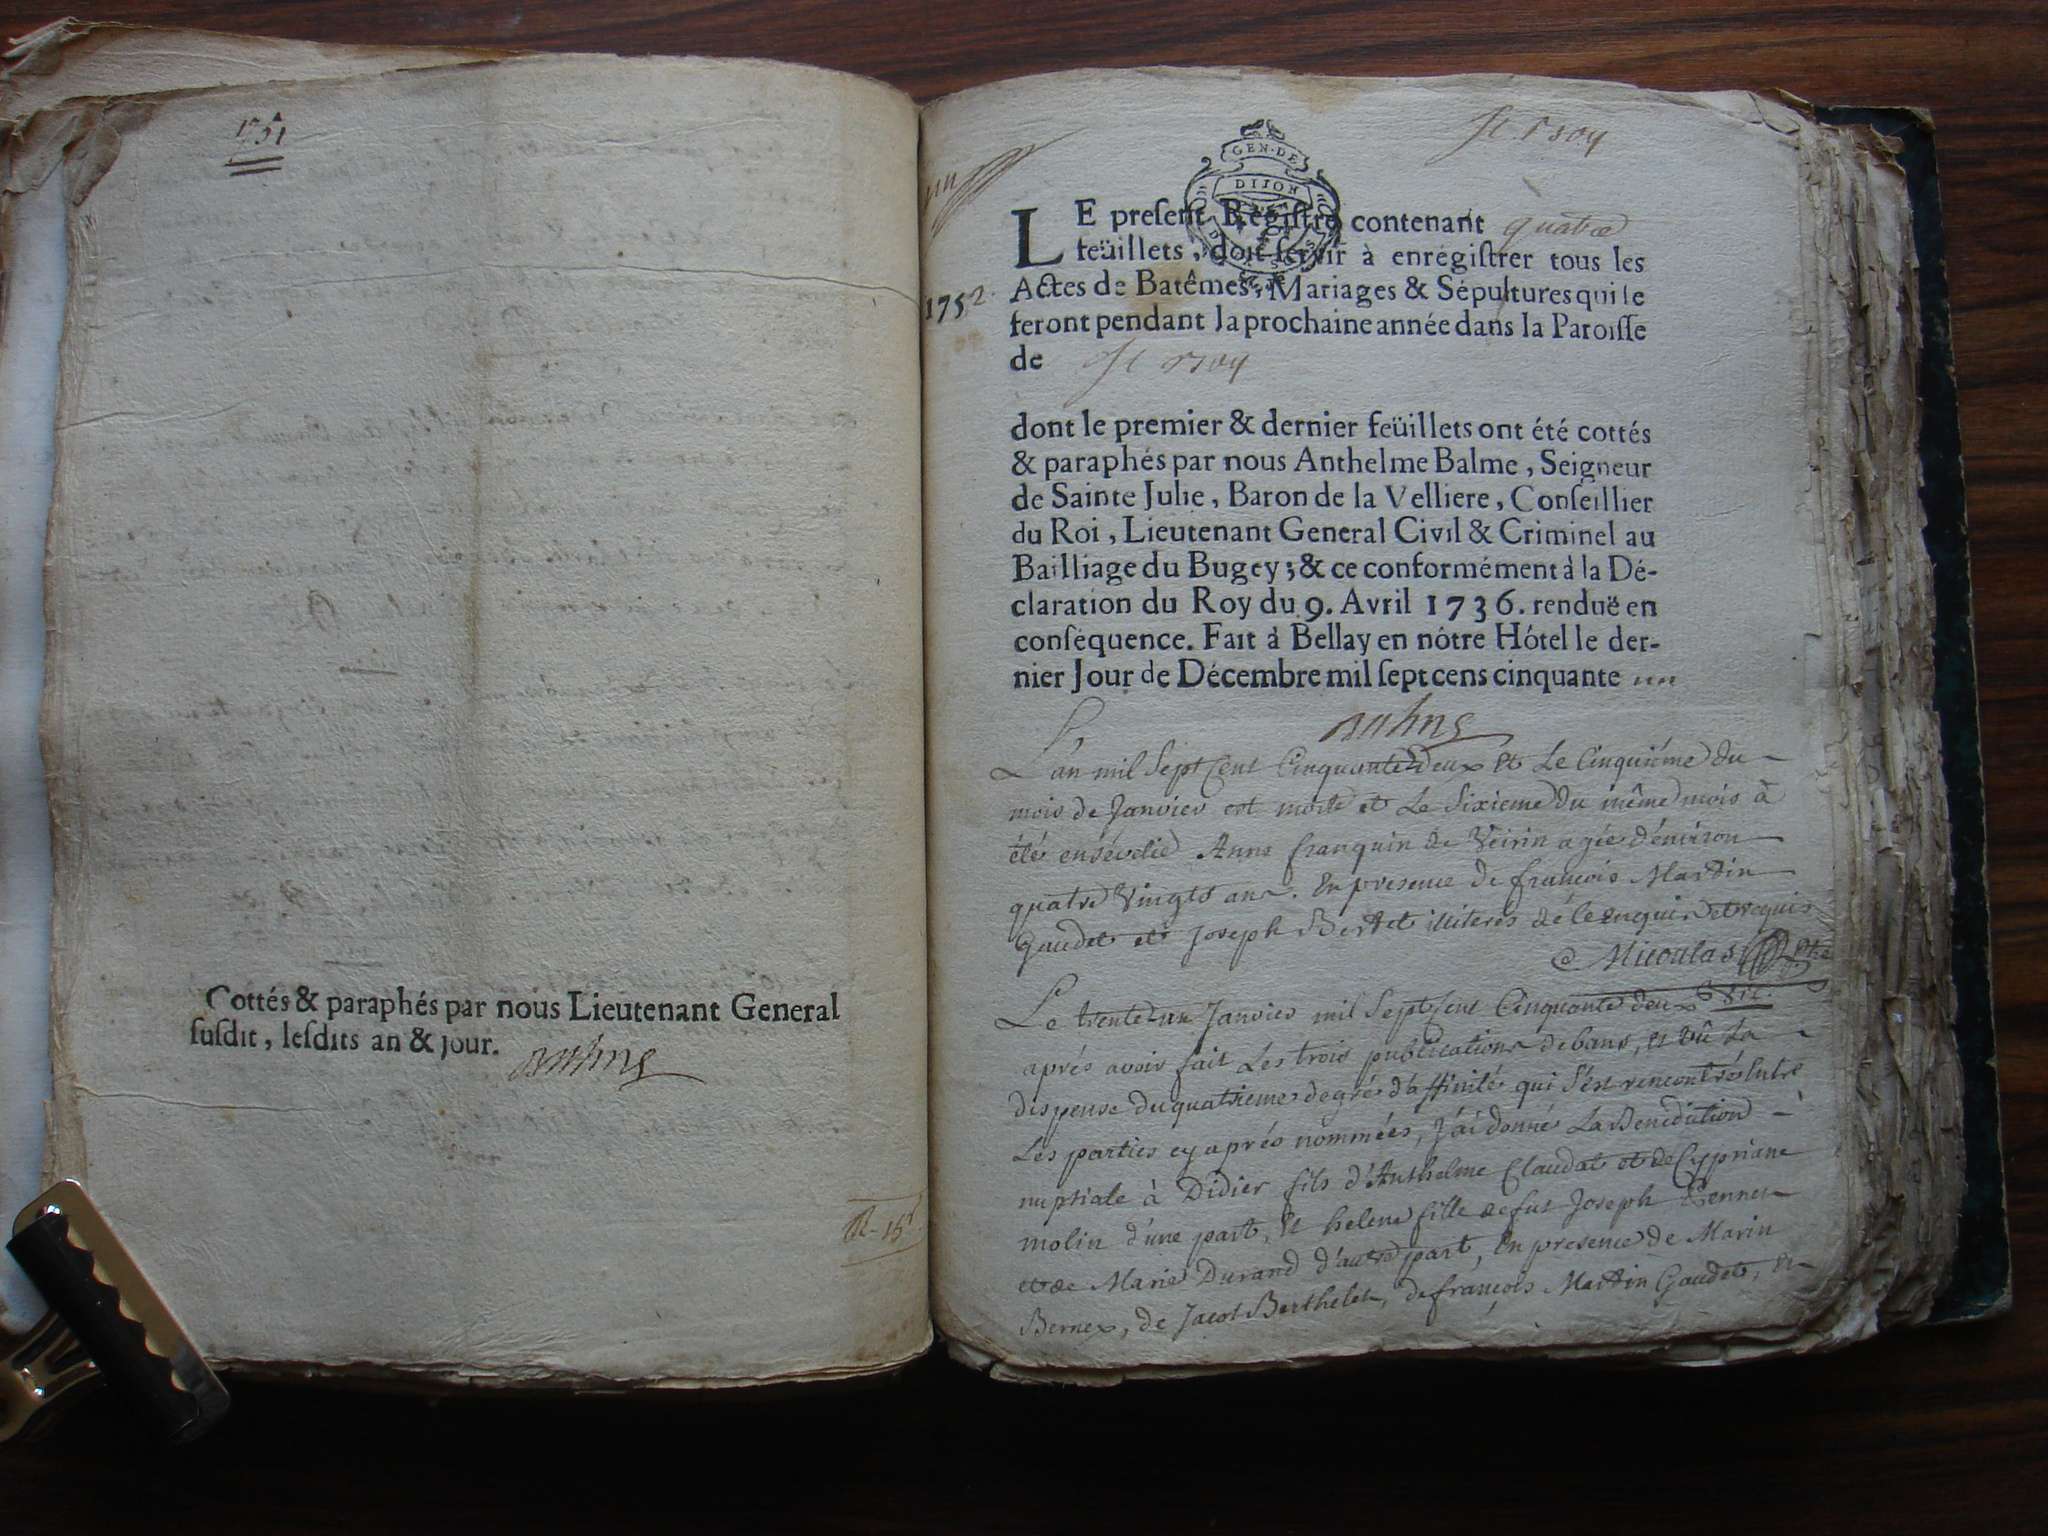 1751
Cottés & paraphés par nous Lieutenant General
susdit, lesdits an & jour.
R-15
un
GEN·DE
DIJON
1752
LE present Régistre contenant quatre
feüillets, doit servir à enrégistrer tous les
Actes de Batêmes, Mariages & Sépultures qui se
feront pendant la prochaine année dans la Paroisse
de
dont le premier & dernier feüillets ont été cottés
& paraphés par nous Anthelme Balme, Seigneur
de Sainte Julie, Baron de la Velliere, Conseillier
du Roi, Lieutenant General Civil & Criminel au
Bailliage du Bugey; & ce conformément à la Dé-
claration du Roy du 9. Avril 1736. renduë en
conséquence. Fait à Bellay en nôtre Hôtel le der-
nier Jour de Décembre mil sept cens cinquante un
L'an mil Sept Cent Cinquante deux Et Le Cinquième du
mois de Janvier est morte et Le Sixieme du même mois à
été ensévelie Anne franquin de Veirin agée d'environ
quatre Vingts ans. En presence de françois Martin
Gaudet et Joseph Bertet illiteres dé le enquis et requis
Micoulas
Le trente un Janvier mil Sept Cent Cinquante deux
aprés avoir fait Les trois publications de bans, et vû La
dispense du quatrieme degré d'affinité qui S'est rencontré Entre
Les parties cy aprés nommées, J'ai donné La Benédiction
nuptiale à Didier fils d'Anthelme Claudat et de Cypriane
molin d'une part, Et helene fille de fut Joseph
et de Marie Durand d'autre part, En presence de Marin
Bernex, de Jacot Berthelet, de françois Martin Gaudet, et